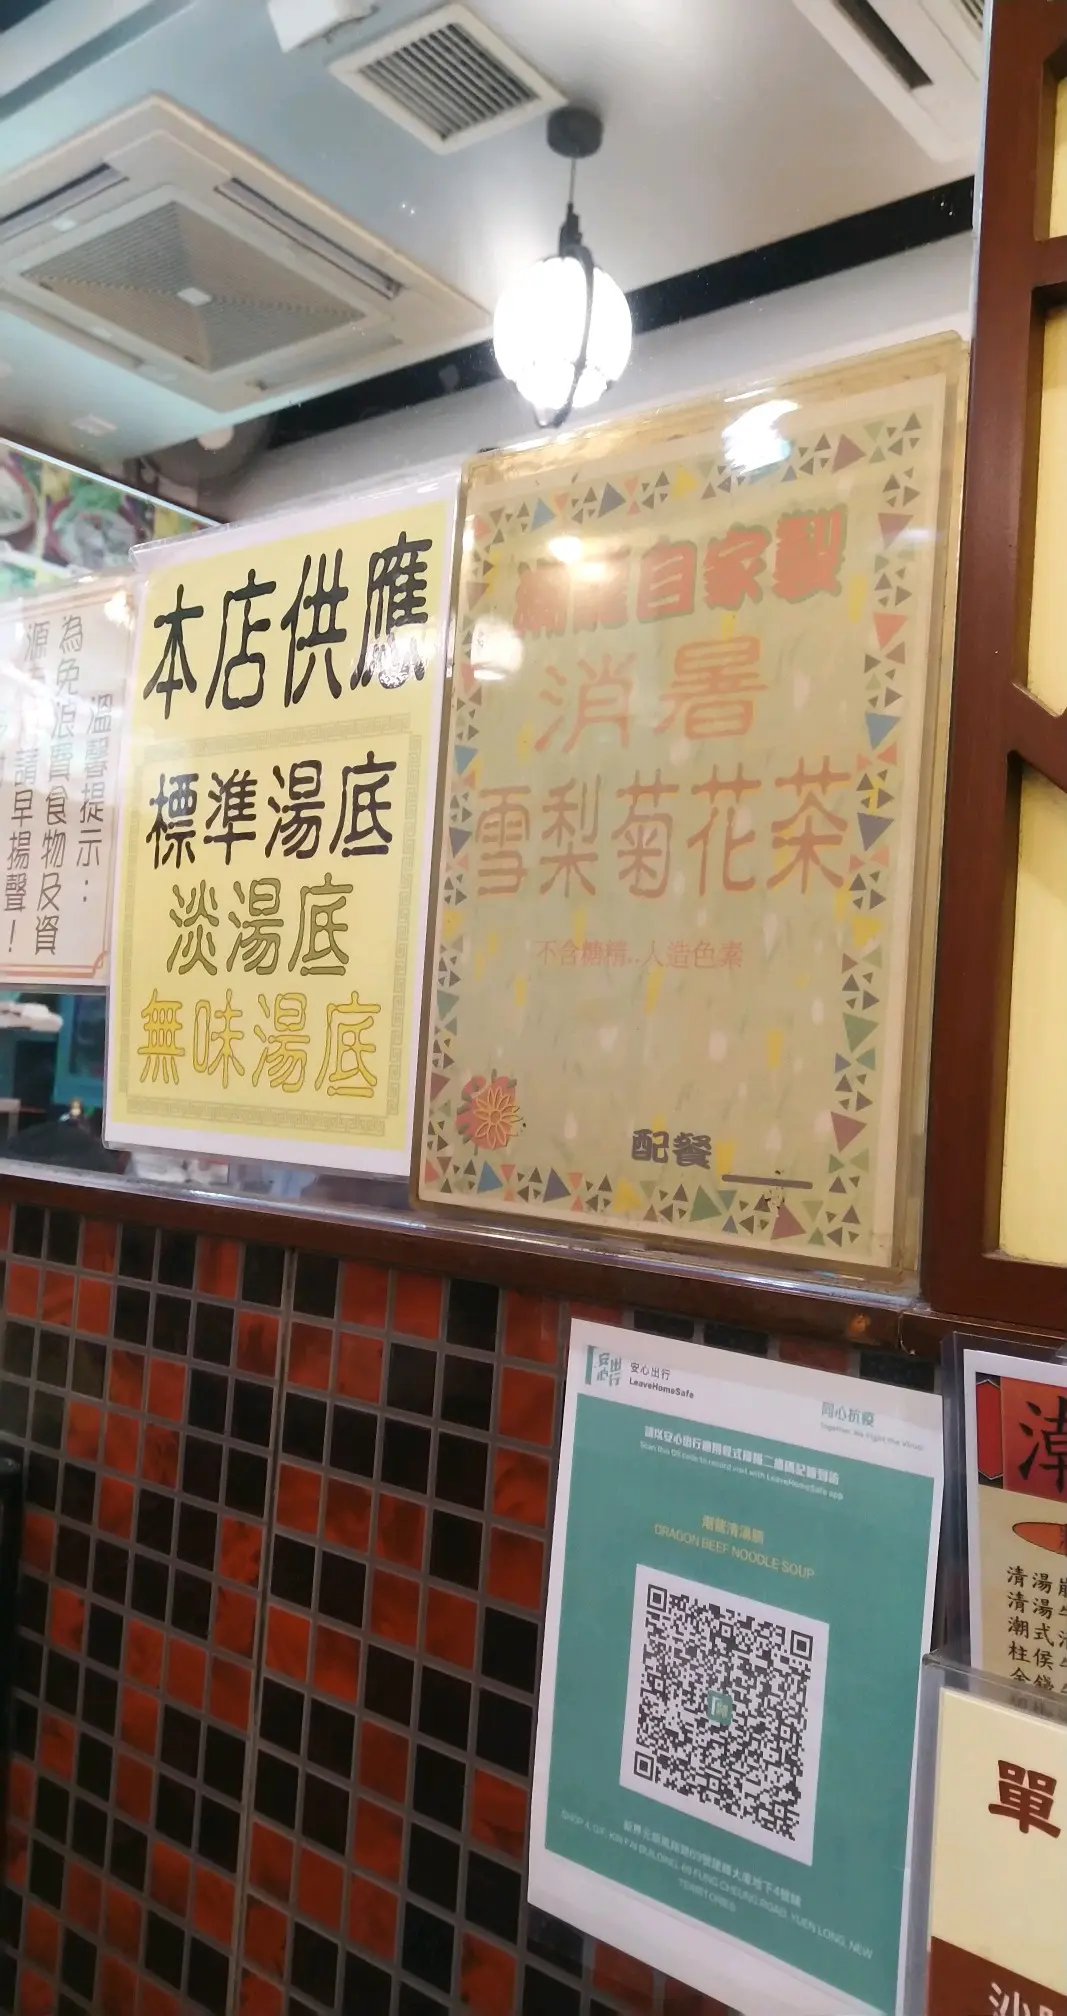 溫馨提示：
為免浪費食物及資
源
請早揚聲！
本店供應
標準湯底
淡湯底
無味湯底
自家製
消暑
雪梨菊花茶
不含糖精..人造色素
配餐
安心出行
LeaveHomeSafe
同心抗疫
Together, We Fight the Virus!
請以安心出行應用程式掃描二維碼記錄到訪
Scan this QR code to record visit with LeaveHomeSafe app
潮龍清湯腩
DRAGON BEEF NOODLE SOUP
SHOP 4, G/F, KIN FAI BUILDING, 69 FUNG CHEUNG ROAD, YUEN LONG, NEW
TERRITORIES
清湯
清湯
潮式
柱侯
金錢
單
沙